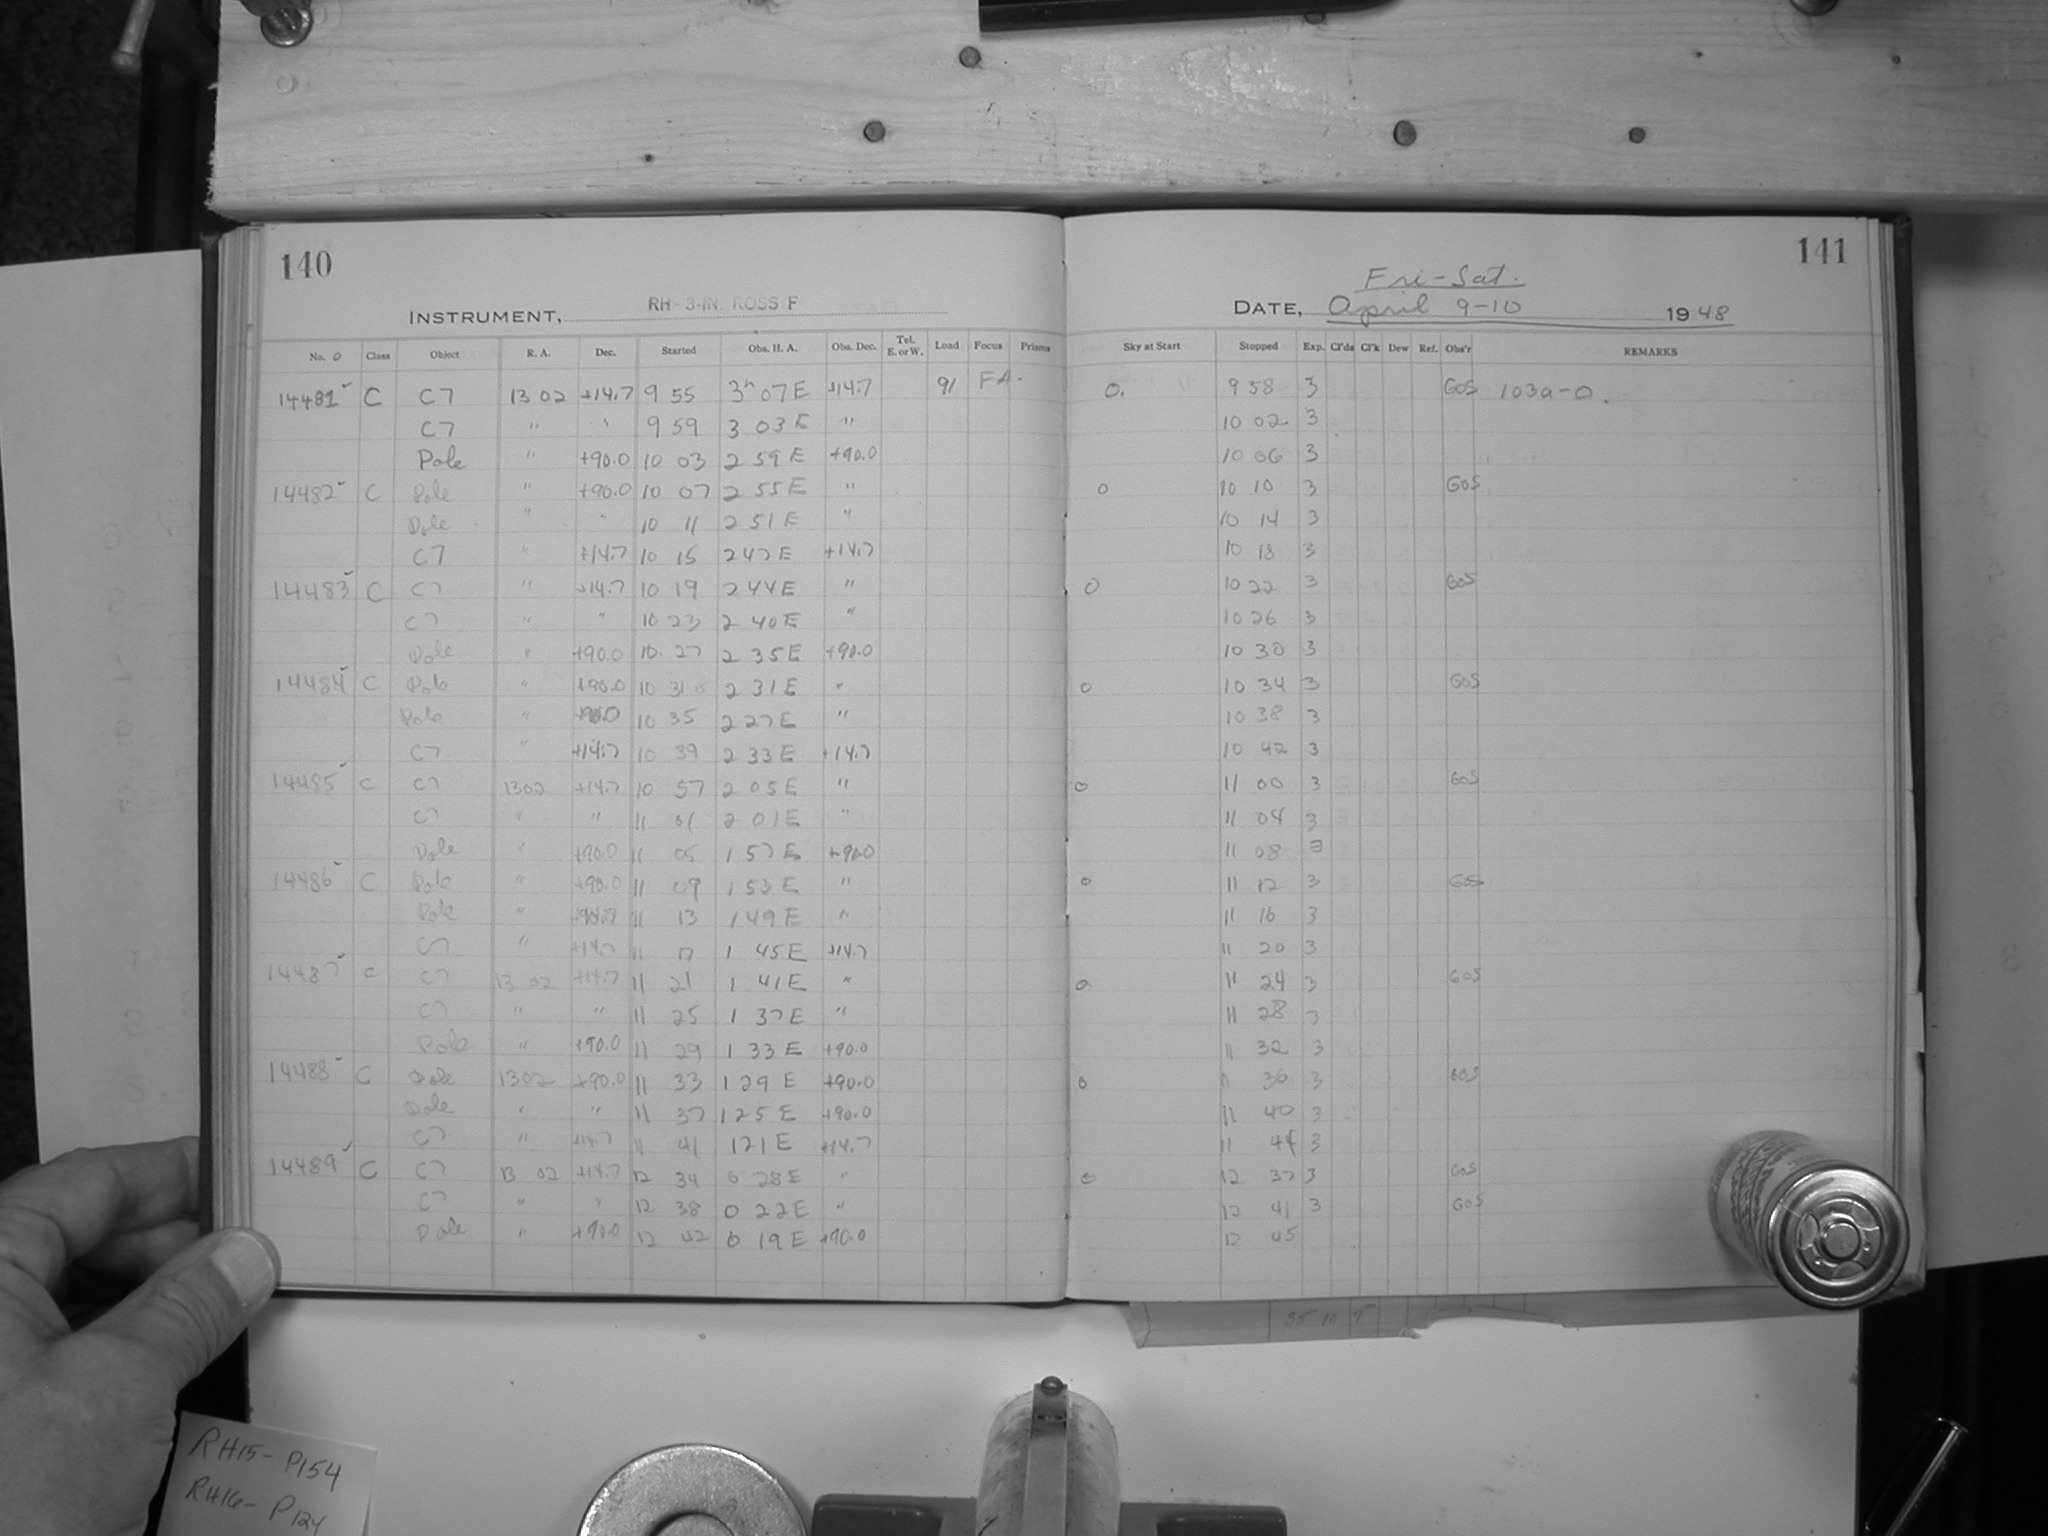 140
INSTRUMENT, RH-3-IN. ROSS F
No. 0 Class Object R. A. Dec. Started Obs. H. A. Obs. Dec. Tel. E. or W. Load Focus Prisms
14481 C C7 13 02 +14.7 9 55 3h 07 E +14.7 91 FA.
C7 " " 9 59 3 03 E "
Pole " +90.0 10 03 2 59 E +90.0
14482 C Pole " +90.0 10 07 2 55 E "
Pole " " 10 11 2 51 E "
C7 " +14.7 10 15 2 47 E +14.7
14483 C C7 " +14.7 10 19 2 44 E "
C7 " " 10 23 2 40 E "
Pole " +90.0 10 27 2 35 E +90.0
14484 C Pole " +90.0 10 31 2 31 E "
Pole " +90.0 10 35 2 27 E "
C7 " +14.7 10 39 2 33 E +14.7
14485 C C7 1302 +14.7 10 57 2 05 E "
C7 " " 11 01 2 01 E "
Pole " +90.0 11 05 1 57 E +90.0
14486 C Pole " +90.0 11 09 1 53 E "
Pole " 11 13 1 49 E "
C7 " +14.7 11 17 1 45 E +14.7
14487 C C7 13 02 +14.7 11 21 1 41 E "
C7 " " 11 25 1 37 E "
Pole " +90.0 11 29 1 33 E +90.0
14488 C Pole 1302 +90.0 11 33 1 29 E +90.0
Pole " " 11 37 1 25 E +90.0
C7 " +14.7 11 41 1 21 E +14.7
14489 C C7 13 02 +14.7 12 34 0 28 E "
C7 " " 12 38 0 22 E "
Pole " +90.0 12 42 0 19 E +90.0
141
Fri-Sat.
DATE, April 9-10 1948
Sky at Start Stopped Exp. Cl'ds Cl'k Dew Ref. Obs'r REMARKS
0. 9 58 3 GOS 103a-O.
10 02 3
10 06 3
0 10 10 3 GOS
10 14 3
10 18 3
0 10 22 3 GOS
10 26 3
10 30 3
0 10 34 3 GOS
10 38 3
10 42 3
0 11 00 3 GOS
11 04 3
11 08 3
0 11 12 3 GOS
11 16 3
11 20 3
0 11 24 3 GOS
11 28 3
11 32 3
0 11 36 3 GOS
11 40 3
11 44 3
0 12 37 3 GOS
12 41 3 GOS
12 45
RH15- P154
RH16- P124